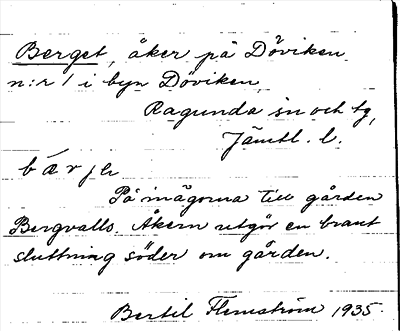 Berget, åker på Döviken
n:r 1 i byn Döviken,
Ragunda sn och tg,
Jämtl. l.
bærjè
På inägorna till gården
Bergvalls. Åkern utgör en brant
sluttning söder om gården.
Bertil Flemström 1935.